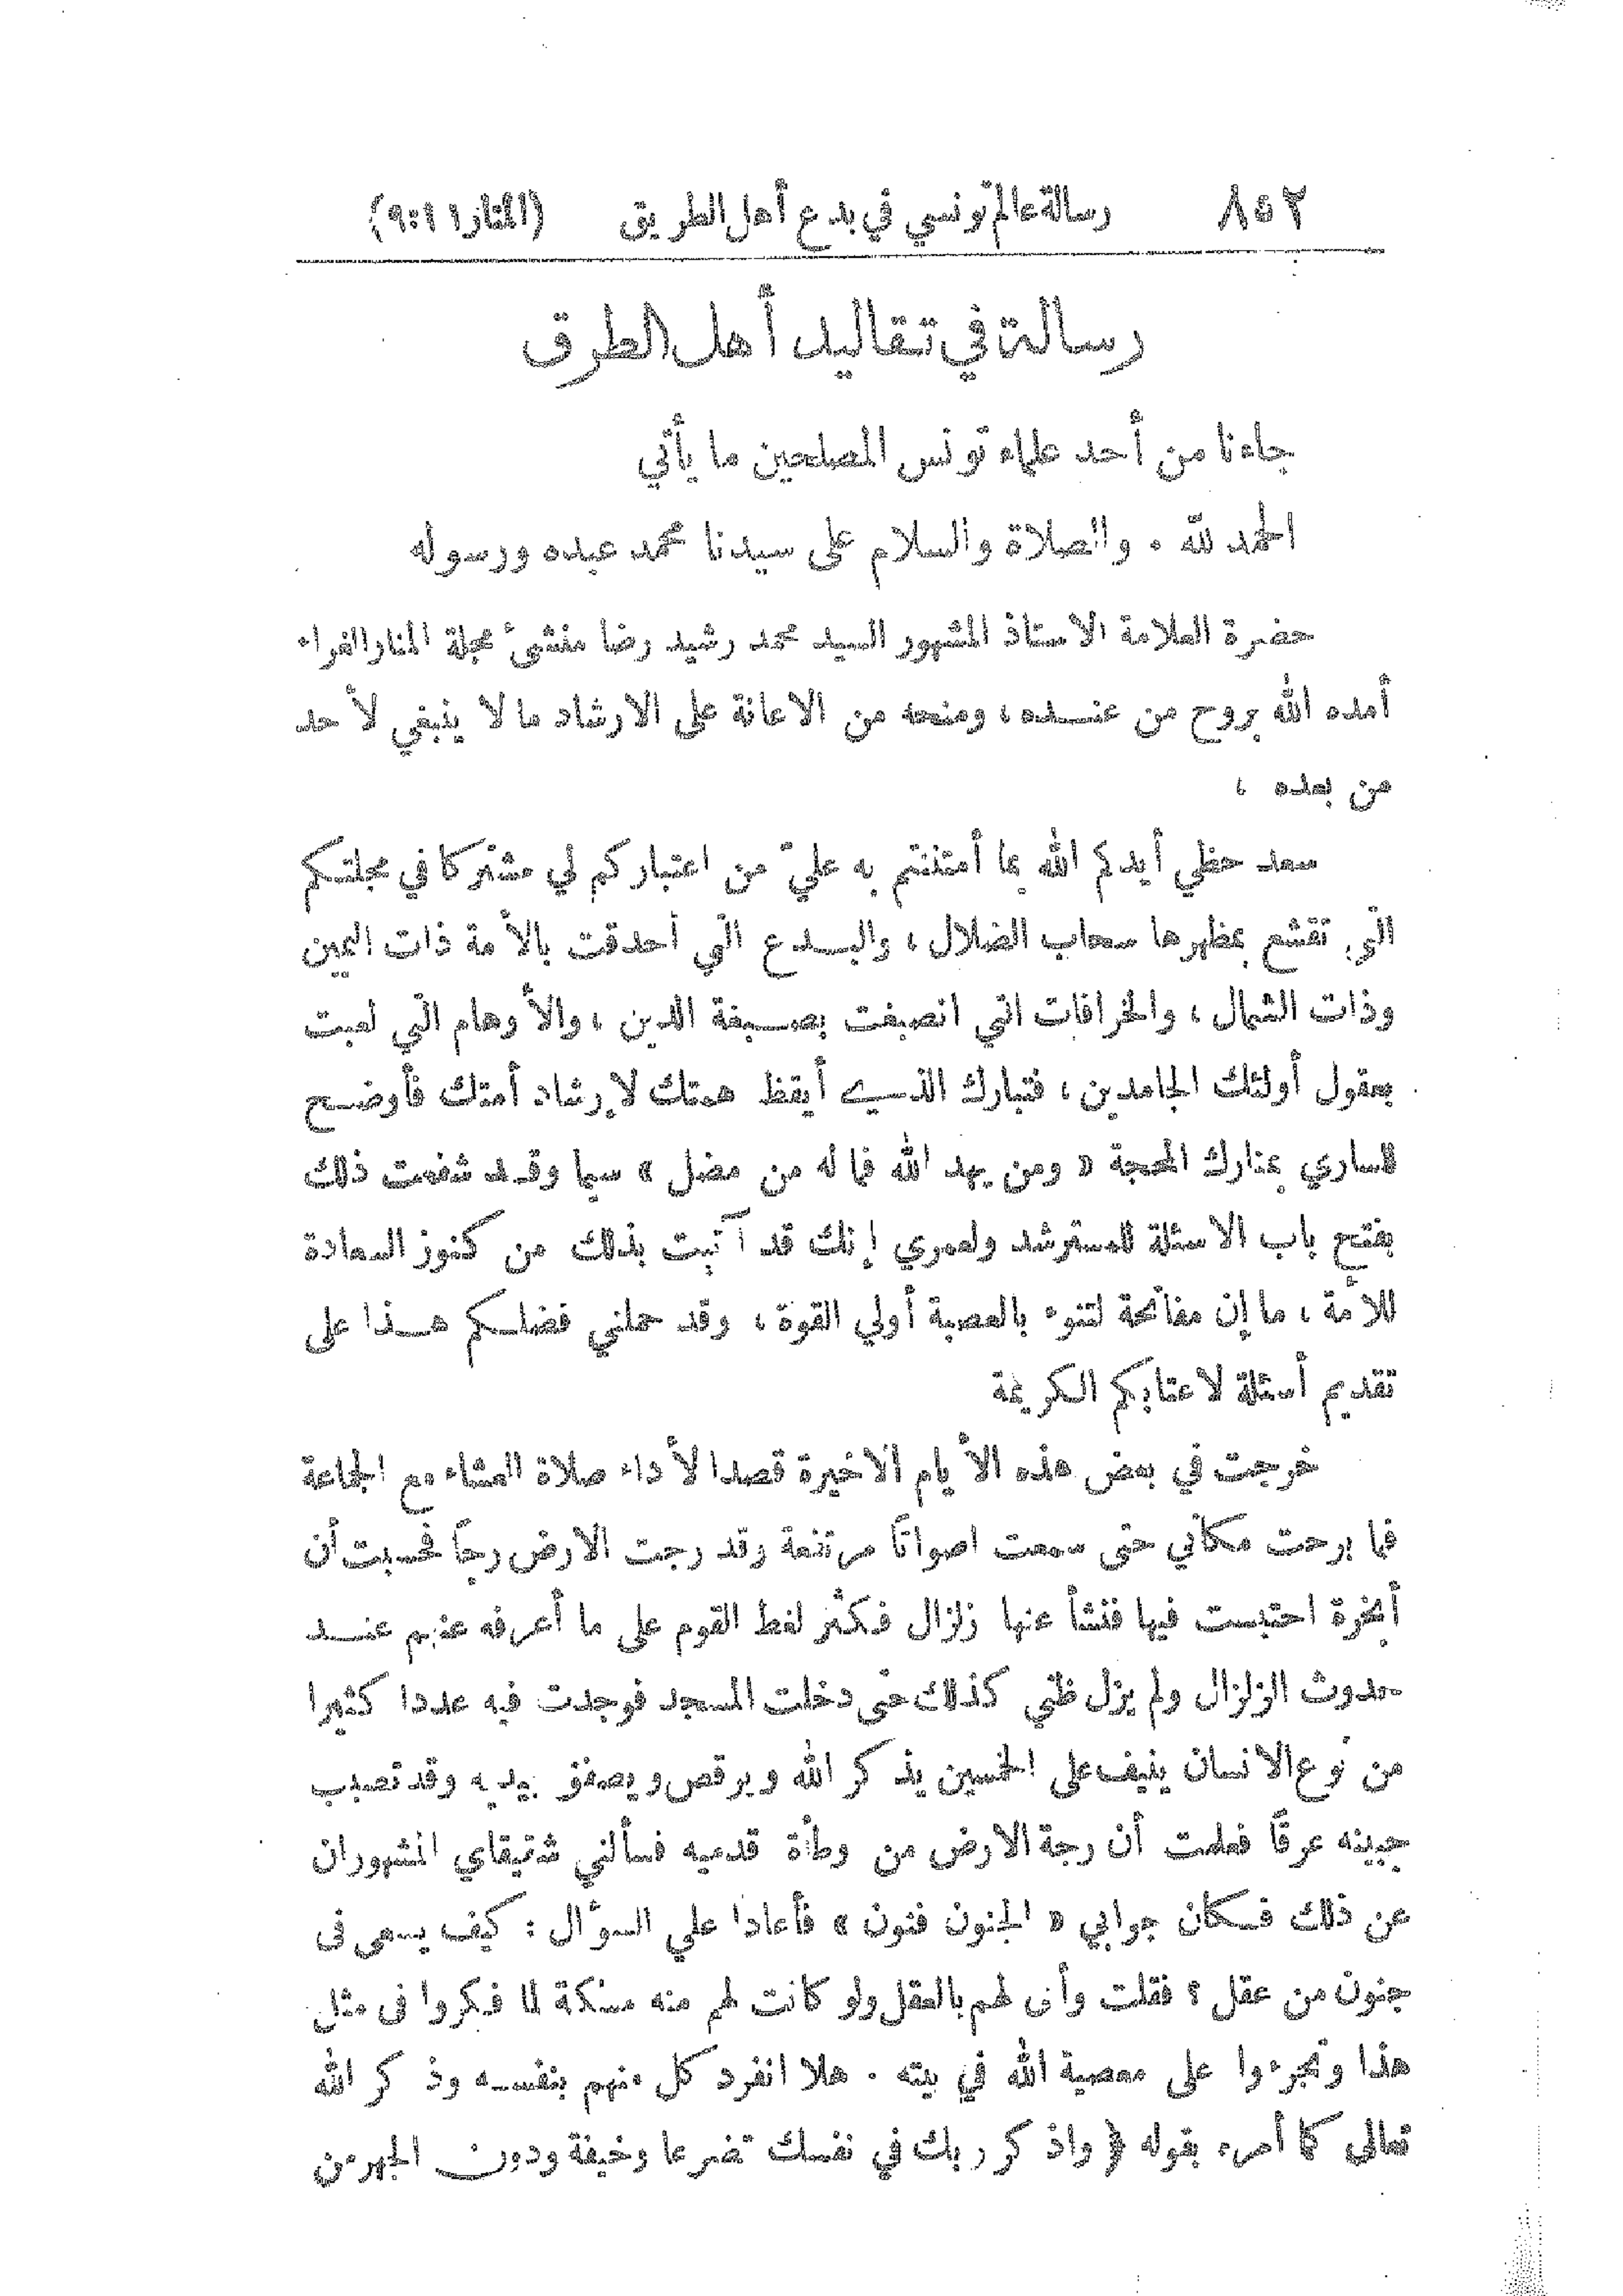 ٨٥٢ رسالة عالم تونسي في بدع أهل الطريق (المنار ١١ : ٩)
رسالة في تقاليد أهل الطرق
جاءنا من أحد علماء تونس المصلحين ما يأتي
الحمد لله . والصلاة والسلام على سيدنا محمد عبده ورسوله
حضرة العلامة الاستاذ المشهور السيد محمد رشيد رضا منشئ مجلة المنار الغراء
أمده الله بروح من عنده ، ومنحه من الاعانة على الارشاد ما لا ينبغي لأحد
من بعده ،
سعد حظي أيدكم الله بما أمتننتم به عليّ من اعتباركم لي مشتركا في مجلتكم
التي تقشع بمظهرها سحاب الضلال ، والبدع التي أحدقت بالأمة ذات اليمين
وذات الشمال ، والخرافات اتي انصبغت بصبغة الدين ، والأوهام التي لعبت
بعقول أولئك الجامدين ، فتبارك الذي أيقظ همتك لإرشاد أمتك فأوضح
للساري بمنارك المحجة « ومن يهد الله فما له من مضل » سيما وقد شفعت ذلك
بفتح باب الاسئلة للمسترشد ولعمري إنك قد آتيت بذلك من كنوز السعادة
للأمة ، ما إن مفاتحة لتنوء بالعصبة أولي القوة ، وقد حملني فضلكم هذا على
تقديم أسئلة لاعتابكم الكريمة
خرجت في بعض هذه الأيام الاخيرة قصدا لأداء صلاة العشاء مع الجماعة
فما برحت مكاني حتى سمعت اصواتاً مرتفعة وقد رجت الارض رجاً فحسبت أن
أبخرة احتبست فيها فنشأ عنها زلزال فكثر لغط القوم على ما أعرفه عنهم عند
حدوث الزلزال ولم يزل ظني كذلك حتى دخلت المسجد فوجدت فيه عددا كثيرا
من نوع الانسان ينيف على الخمسين يذكر الله ويرقص ويصفق بيديه وقد تصبب
جبينه عرقاً فعلمت أن رجة الارض من وطأة قدميه فسألني شقيقاي المشهوران
عن ذلك فكان جوابي « الجنون فنون » فأعادا علي السؤال : كيف يسعى فى
جنون من عقل ؟ فقلت وأنى لهم بالعقل ولو كانت لهم منه مسكة لما فكروا فى مثل
هذا وتجرءوا على معصية الله في بيته . هلا انفرد كل منهم بنفسه وذكر الله
تعالى كما أمره بقوله ﴿ واذكر ربك في نفسك تضرعا وخيفة ودون الجهر من